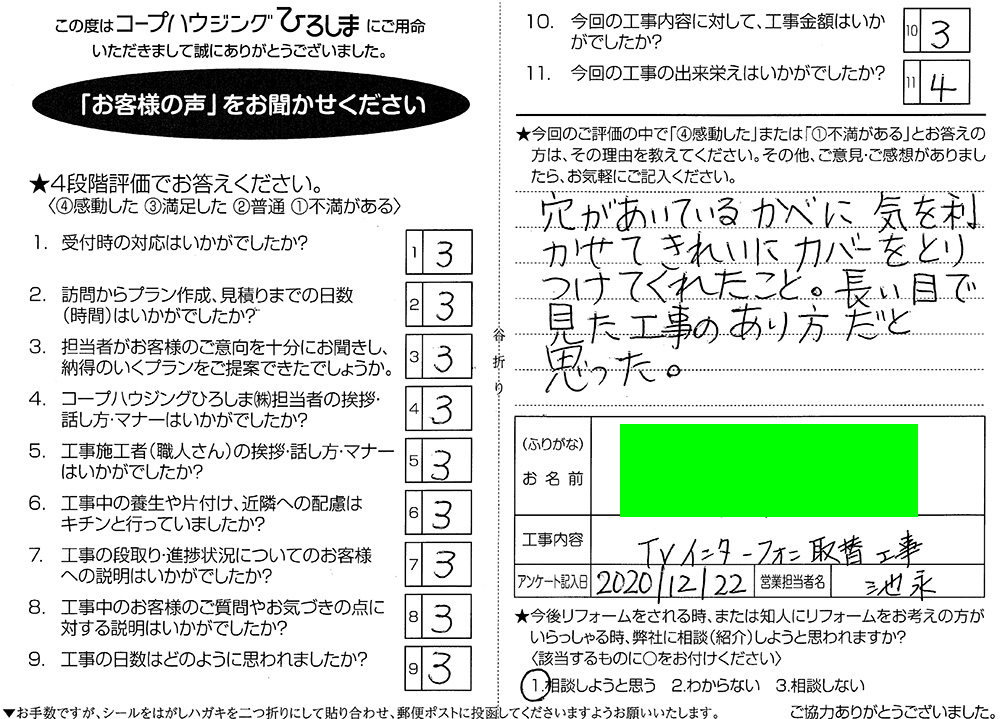 この度はコープハウジングひろしまにご用命
いただきまして誠にありがとうございました。
「お客様の声」をお聞かせください
★4段階評価でお答えください。
〈④感動した ③満足した ②普通 ①不満がある〉
1. 受付時の対応はいかがでしたか?
1 3
2. 訪問からプラン作成、見積りまでの日数
(時間)はいかがでしたか?
2 3
3. 担当者がお客様のご意向を十分にお聞きし、
納得のいくプランをご提案できたでしょうか。
3 3
4. コープハウジングひろしま㈱担当者の挨拶・
話し方・マナーはいかがでしたか?
4 3
5. 工事施工者(職人さん)の挨拶・話し方・マナー
はいかがでしたか?
5 3
6. 工事中の養生や片付け、近隣への配慮は
キチンと行っていましたか?
6 3
7. 工事の段取り・進捗状況についてのお客様
への説明はいかがでしたか?
7 3
8. 工事中のお客様のご質問やお気づきの点に
対する説明はいかがでしたか?
8 3
9. 工事の日数はどのように思われましたか?
9 3
▼お手数ですが、シールをはがしハガキを二つ折りにして貼り合わせ、郵便ポストに投函してくださいますようお願いいたします。
谷折り
10. 今回の工事内容に対して、工事金額はいか
がでしたか?
10 3
11. 今回の工事の出来栄えはいかがでしたか?
11 4
★今回のご評価の中で「④感動した」または「①不満がある」とお答えの
方は、その理由を教えてください。その他、ご意見・ご感想がありまし
たら、お気軽にご記入ください。
穴があいているかべに 気を利
かせて きれいに カバーをとり
つけてくれたこと。長い目で
見た工事のあり方だと
思った。
(ふりがな)
お名前
工事内容 TVインターフォン取替工事
アンケート記入日 2020/12/22 営業担当者名 池永
★今後リフォームをされる時、または知人にリフォームをお考えの方が
いらっしゃる時、弊社に相談(紹介)しようと思われますか?
〈該当するものに○をお付けください〉
1.相談しようと思う 2.わからない 3.相談しない
ご協力ありがとうございました。